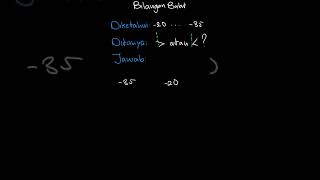 Bilangan Bulat
Diketahui: -20 ... -35
Ditanya: > atau < ?
Jawab:
-35 -20
-35